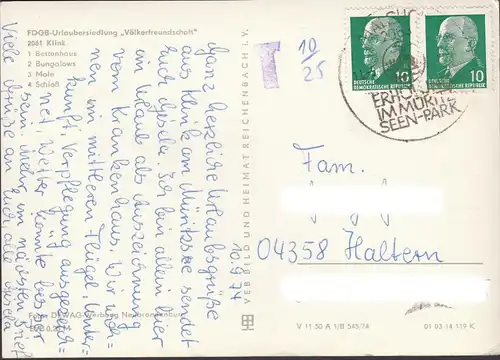 FDGB-Urlaubersiedlung „Völkerfreundschaft"
2061 Klink
1 Bettenhaus
2 Bungalows
3 Mole
4 Schloß
10/25
10.9.74
Ganz herzliche Urlaubsgrüße
aus Klink am Müritzsee sendet
Euch Gisela. Ich bin allein hier
im Urlaub als Auszeichnung
vom Krankenhaus. Wir woh=
nen im mittleren Flügel, Unter=
kunft, Verpflegung ausgezeich=
net, Wetter könnte besser
sein. Mehr im nächsten Brief
Viele Grüße an Euch alle Gisela
Foto: DEWAG-Werbung Neubrandenburg
EVP 0,20 M
VEB BILD UND HEIMAT REICHENBACH I. V.
10
DEUTSCHE
DEMOKRATISCHE REPUBLIK
10
DEUTSCHE
DEMOKRATISCHE REPUBLIK
IM MÜRITZ
SEEN-PARK
Fam.
04358 Haltern
V 11 50 A 1/B 545/74
01 03 14 119 K